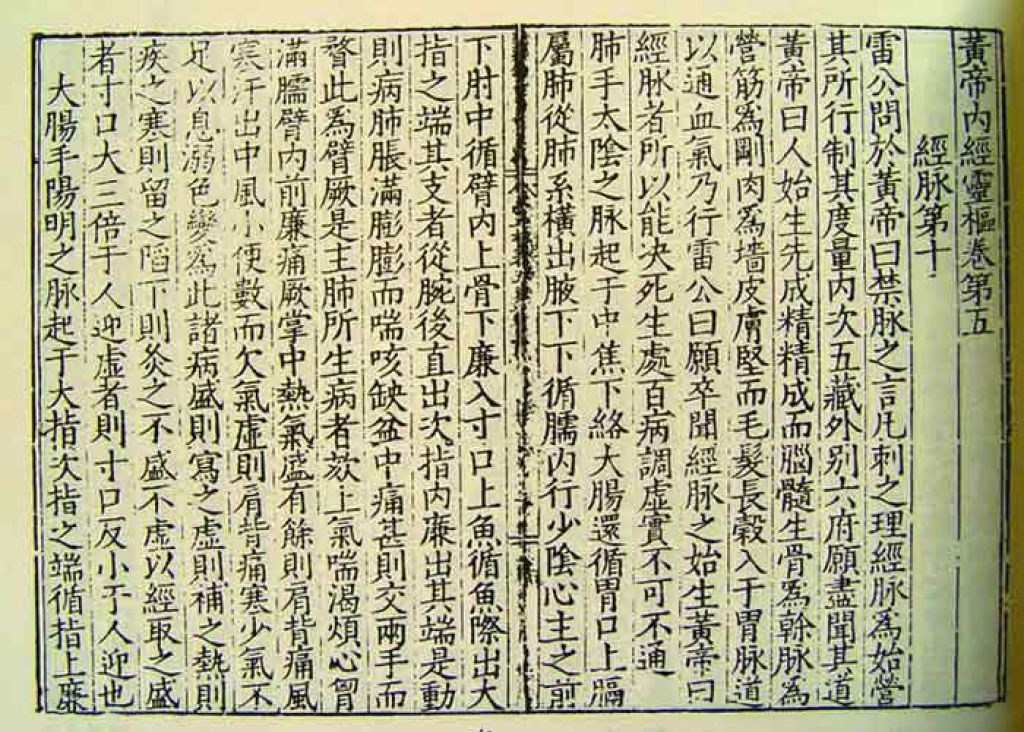 黃帝內經靈樞卷第五
經脉第十
雷公問於黃帝曰禁脉之言凡刺之理經脉為始營
其所行制其度量內次五藏外別六府願盡聞其道
黃帝曰人始生先成精精成而腦髓生骨為幹脉為
營筋為剛肉為墻皮膚堅而毛髮長穀入于胃脉道
以通血氣乃行雷公曰願卒聞經脉之始生黃帝曰
經脉者所以能决死生處百病調虛實不可不通
肺手太陰之脉起于中焦下絡大腸還循胃口上膈
屬肺從肺系橫出腋下下循臑內行少陰心主之前
下肘中循臂內上骨下廉入寸口上魚循魚際出大
指之端其支者從腕後直出次指內廉出其端是動
則病肺脹滿膨膨而喘咳缺盆中痛甚則交兩手而
瞀此為臂厥是主肺所生病者欬上氣喘渴煩心胷
滿臑臂內前廉痛厥掌中熱氣盛有餘則肩背痛風
寒汗出中風小便數而欠氣虛則肩背痛寒少氣不
足以息溺色變為此諸病盛則寫之虛則補之熱則
疾之寒則留之陷下則灸之不盛不虛以經取之盛
者寸口大三倍于人迎虛者則寸口反小于人迎也
大腸手陽明之脉起于大指次指之端循指上廉